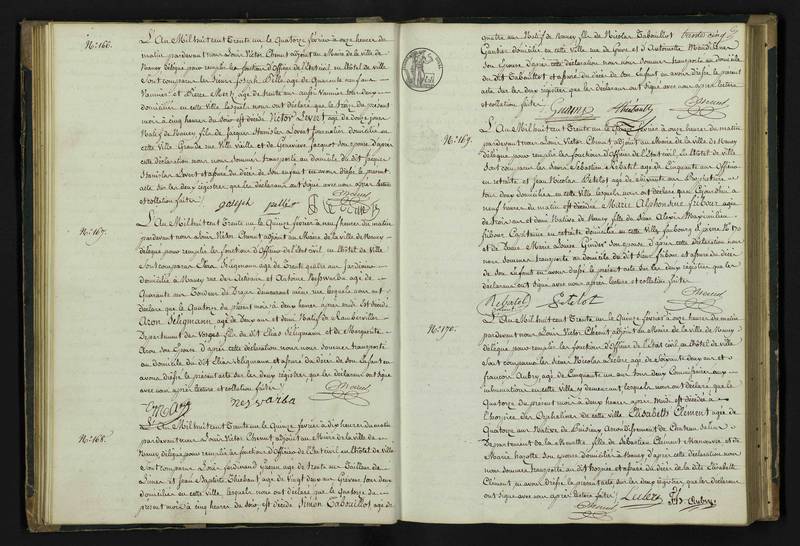 N.° 166.
L'An Mil huit cent Trente un le Quatorze février à onze heures du
matin pardevant nous Louis Victor Chenut adjoint au Maire de la ville de
Nancy délégué pour remplir les fonctions d'Officier de l'Etat civil, en l'hôtel de Ville
Sont comparus les Sieurs Joseph agé de Quarante ans
Vannier et Pierre agé de trente aussi Vannier tous deux
domiciliés en cette Ville lesquels nous ont déclaré que le treize du présent
mois à cinq heures du soir est décédé Victor Levert agé de douze jours
Natif de Nancy fils de Jacques Stanislas Levert journalier domicilié en
cette Ville Grande rue Ville vieille et de Geneviève Jacquot son épouse d'après
cette déclaration nous nous sommes transporté au domicile du dit Jacques
Stanislas Levert et assuré du décès de son enfant en avons dressé le présent
acte sur les deux registres que les déclarants ont signé avec nous après lecture
et collation faites
joseph
N.° 167.
L'An Mil huit cent Trente un le Quinze février à neuf heures du matin
pardevant nous Louis Victor Chenut adjoint au Maire de la ville de Nancy
délégué pour remplir les fonctions d'Officier de l'Etat civil, en l'hôtel de Ville
Sont comparus Seligmann agé de Trente quatre ans
domicilié à Nancy rue et Antoine agé de
Quarante ans Tondeur de Draps demeurant même rue lesquels nous ont
déclaré que le Quatorze du présent mois à deux heures après midi est décédé
Aron Seligmann agé de Deux ans et demi Natif de Lunéville
Département des Vosges fils du dit Elias Seligmann et de Marguerite
Aron son Epouse d'après cette déclaration nous nous sommes transporté
au domicile du dit Elias Seligmann et assuré du décès de son Enfant en
avons dressé le présent acte sur les deux registres, que les déclarants ont signé
avec nous après lecture et collation faites
N.° 168.
L'An Mil huit cent Trente un le Quinze février à dix heures du matin
pardevant nous Louis Victor Chenut adjoint au Maire de la ville de
Nancy délégué pour remplir les fonctions d'Officier de l'Etat civil, en l'Hôtel de Ville
Sont comparus Louis ferdinand agé de trente un Tailleur de
Limes et Jean Baptiste Thiebaut agé de Vingt deux ans Graveur tous deux
domiciliés en cette Ville, lesquels nous ont déclaré que le Quatorze du
présent mois à cinq heures du soir est décédé Simon Tabouillot agé de
quatre ans Natif de Nancy fils de Nicolas Tabouillot
Gantier domicilié en cette Ville rue de Grève et d'Antoinette
son Epouse d'après cette déclaration nous nous sommes transporté au domicile
du dit Tabouillot et assuré du décès de son Enfant en avons dressé le présent
acte sur les deux registres que les déclarants ont signé avec nous après lecture
et collation faites
N.° 169.
L'An Mil huit cent Trente un le Quinze février à onze heures du matin
pardevant nous Louis Victor Chenut adjoint au Maire de la ville de Nancy
délégué pour remplir les fonctions d'Officier de l'Etat civil, en l'Hôtel de Ville
Sont comparus les Sieurs Sébastien Rebatel agé de Cinquante ans Officier
en retraite et Jean Nicolas Petelot agé de soixante ans
tous deux domiciliés en cette Ville lesquels nous ont déclaré que Cejourd'hui à
neuf heures du matin est décédée Marie Alphonsine friboux agée
de trois ans et demi Native de Nancy fille du Sieur Alexis Maximilien
friboux Capitaine en retraite domicilié en cette Ville faubourg St pierre N.° 170
et de Dame Marie Louise son épouse d'après cette déclaration nous
nous sommes transporté au domicile du dit Sieur friboux et assuré du décès
de son Enfant en avons dressé le présent acte sur les deux registres que les
déclarants ont signé avec nous après lecture et collation faites
Petelot
N.° 170.
L'An Mil huit cent Trente un le Quinze février à onze heures du matin
pardevant nous Louis Victor Chenut adjoint au Maire de la ville de Nancy
délégué pour remplir les fonctions d'Officier de l'Etat civil au l'Hôtel de ville
Sont comparus les Sieurs Nicolas Leclerc agé de Soixante deux ans et
françois Aubry agé de Cinquante un ans tous deux Commissionnaires aux
inhumations en cette Ville y demeurant lesquels nous ont déclaré que le
Quatorze du présent mois à deux heures après midi est décédée à
l'hospice des Orphelines de cette ville Elisabeth Clément agée de
Quatorze ans Native de Arrondissement de Chateau Salins
Département de la Meurthe, fille de Sébastien Clément Manœuvre et de
Marie son épouse domiciliés à Nancy d'après cette déclaration nous
nous sommes transporté au dit Hospice et assuré du décès de la dite Elisabeth
Clément en avons dressé le présent acte sur les deux registres, que les déclarants
ont signé avec nous après lecture faites
Leclerc
Aubry